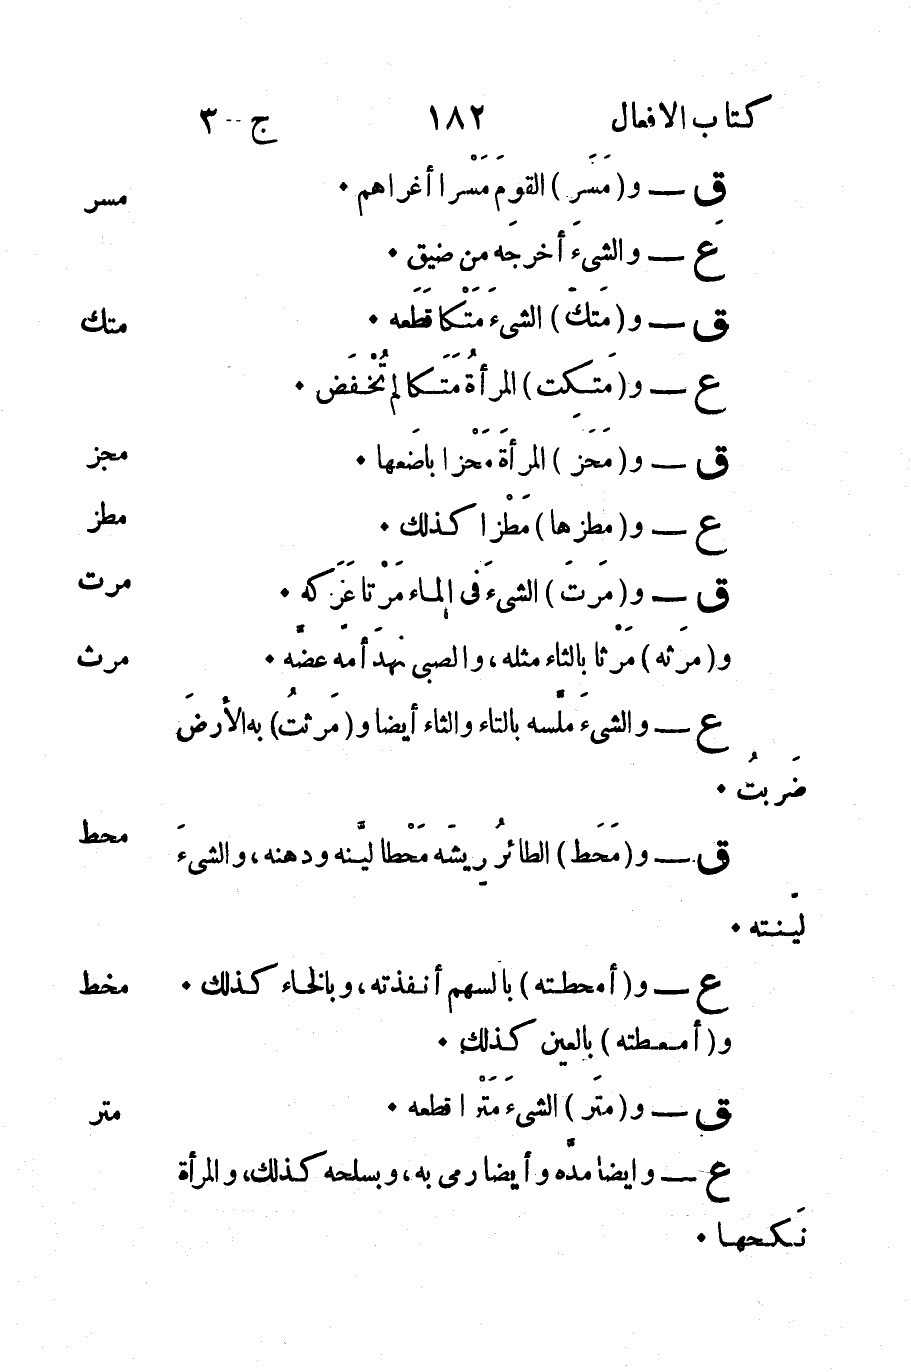 كتاب الافعال ١٨٢ ج--٣
ق — و(مَسَرَ) القومَ مَسْرا أغراهم • مسر
ع — والشىءَ أخرجَه من ضيق •
ق — و(مَتَكَ) الشىءَ مَتْكا قَطَعه • متك
ع — و(مَتِكت) المرأةُ مَتَكا لم تُخْفَض •
ق — و(مَحَز) المرأةَ مَحْزا باضَعها • مجز
ع — و(مطزها) مَطْزا كذلك • مطز
ق — و(مَرتَ) الشىءَ فى الماء مَرْتا عَرَكه • مرت
و(مرَثه) مَرْثا بالثاء مثله، والصبى نهدَ أمّه عضّه • مرث
ع — والشىءَ ملّسه بالتاء والثاء أيضا و(مَرثتُ) به الأرضَ
ضَربتُ •
ق — و(مَحَط) الطائرُ ريشَه مَحْطا ليّنه ودهنه، والشىءَ محط
ليّنته •
ع — و(أمحطته) بالسهم أنفذته، وبالخاء كذلك • مخط
و(أمعطته) بالعين كذلك •
ق — و(متَر) الشىءَ مَتْرا قطعه • متر
ع — وايضا مدّه وأيضا رمى به، وبسلحه كذلك، والمرأة
نَكحها •